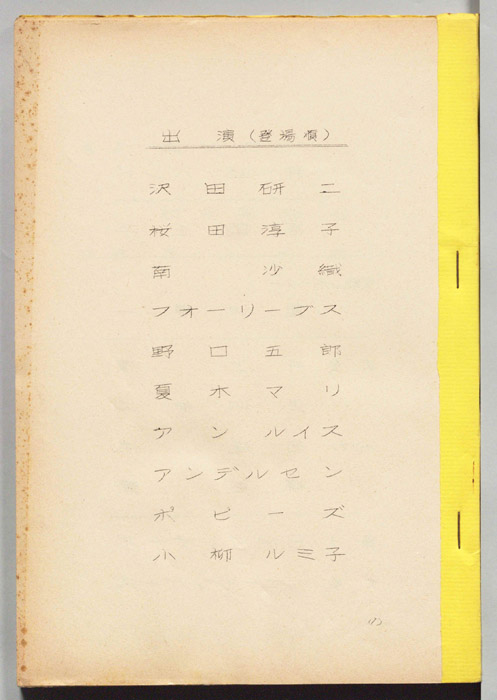 出演(登場順)
沢田研二
桜田淳子
南沙織
フォーリーブス
野口五郎
夏木マリ
アンルイス
アンデルセン
ポピーズ
小柳ルミ子